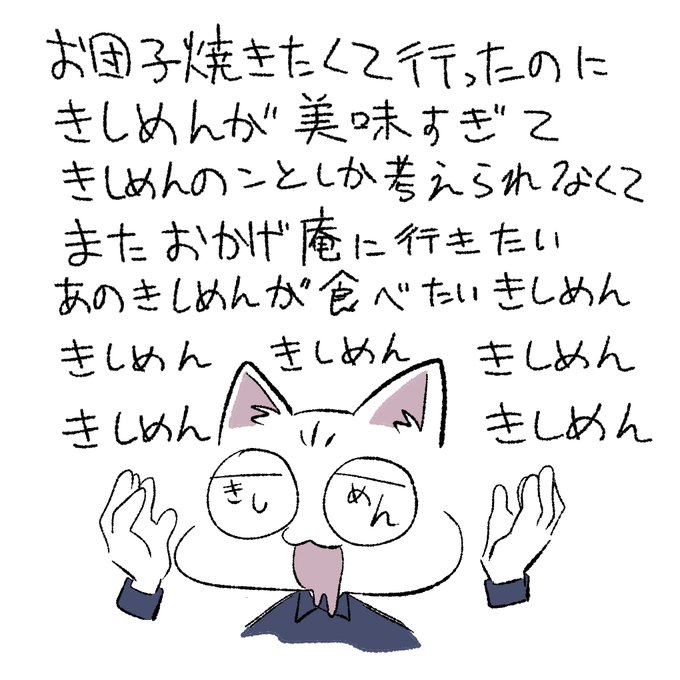 お団子焼きたくて行ったのに
きしめんが美味すぎて
きしめんのことしか考えられなくて
またおかげ庵に行きたい
あのきしめんが食べたいきしめん
きしめん きしめん きしめん
きしめん きしめん
きし めん